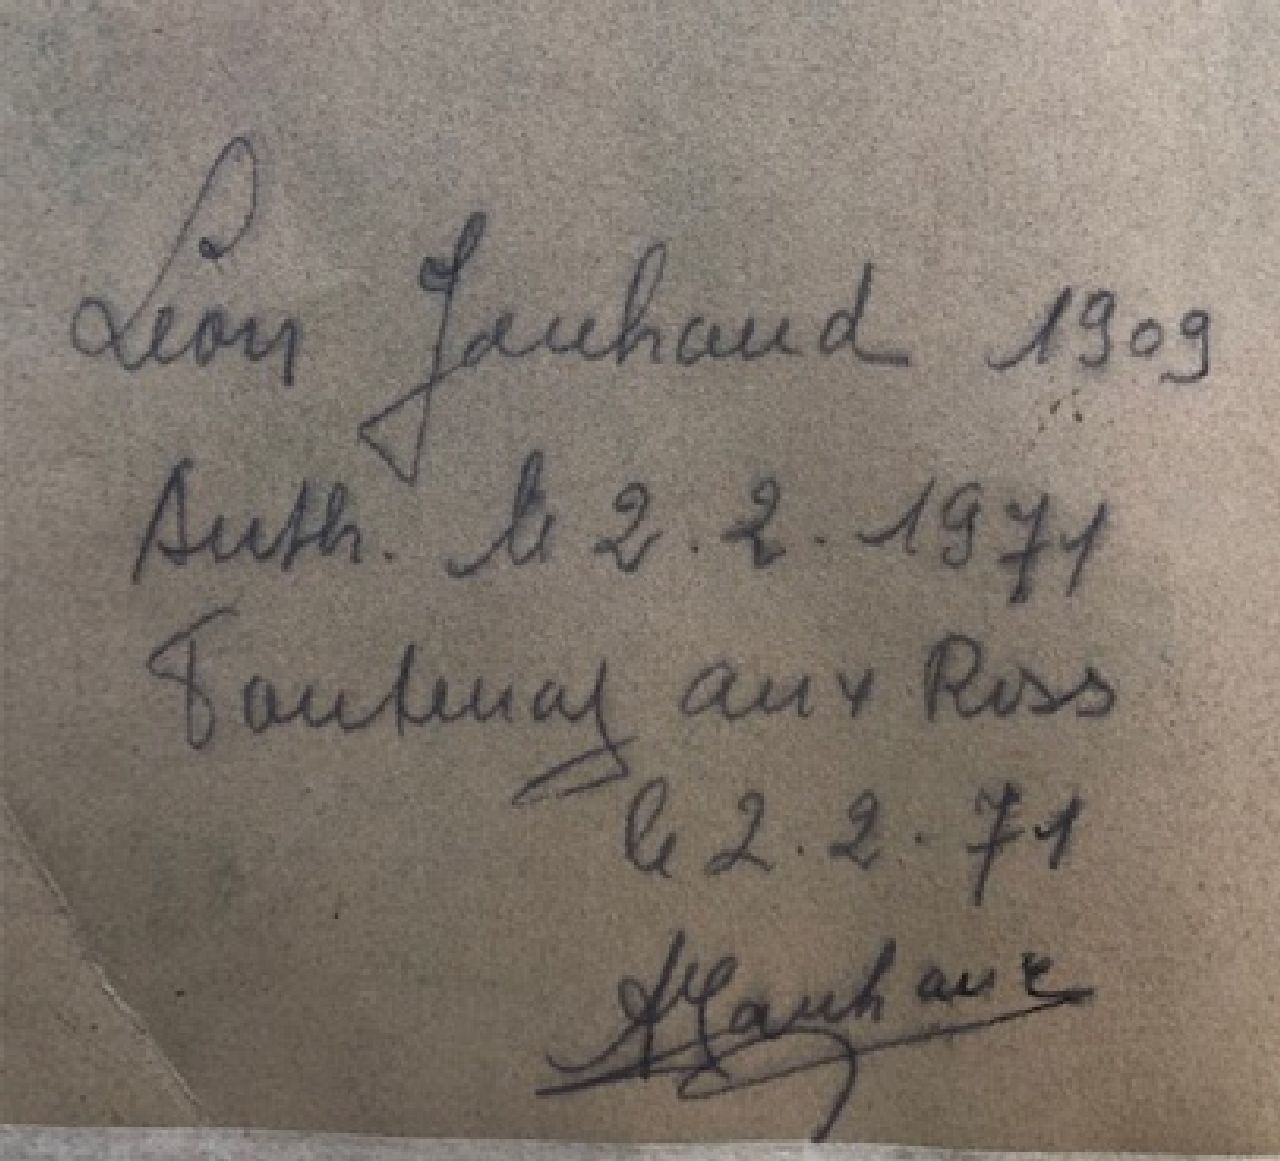 Léon Jouhaud 1909
Auth. le 2.2.1971
Fontenay aux Roses
le 2.2.71